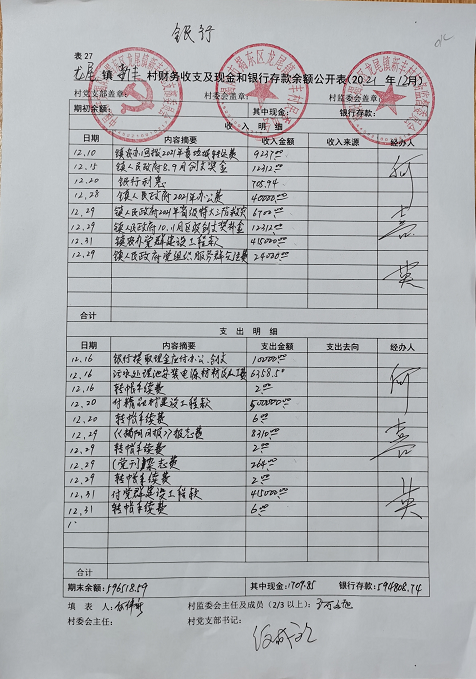 银行
表27
龙尾镇新丰村财务收支及现金和银行存款余额公开表(2021年12月)
村党支部盖章: 村委会盖章: 村监委会盖章:
期初余额: 其中现金: 银行存款:
收入明细
日期 内容摘要 收入金额 收入来源 经办人
12.10 9237.00
12.15 镇人民政府8.9月创文奖金 12312.00
12.20 银行利息 705.94
12.28 镇人民政府2021年办公费 40000.00
12.29 镇人民政府2021年 6700.00
12.29 镇人民政府10.11月 12312.00
12.31 党群建设工程款 415000.00
12.29 镇人民政府党组织服务群众经费 24000.00
何喜英
合计
支出明细
日期 内容摘要 支出金额 支出去向 经办人
12.16 银行提取现金 10000.00
12.16 污水处理池安装电源材料及人工费 6358.50
12.16 转帐手续费 2.00
12.20 付 建设工程款 500000.00
12.20 转帐手续费 6.00
12.29 《揭阳日报》报志费 8310.00
12.29 转帐手续费 2.00
12.29 (党刊)杂志费 264.00
12.29 转帐手续费 2.00
12.31 付党群建设工程款 415000.00
12.31 转帐手续费 6.00
何喜英
合计
期末余额:596518.59 其中现金:1709.85 银行存款:594808.74
填表人: 村监委会主任及成员(2/3以上):
村委会主任: 村党支部书记: